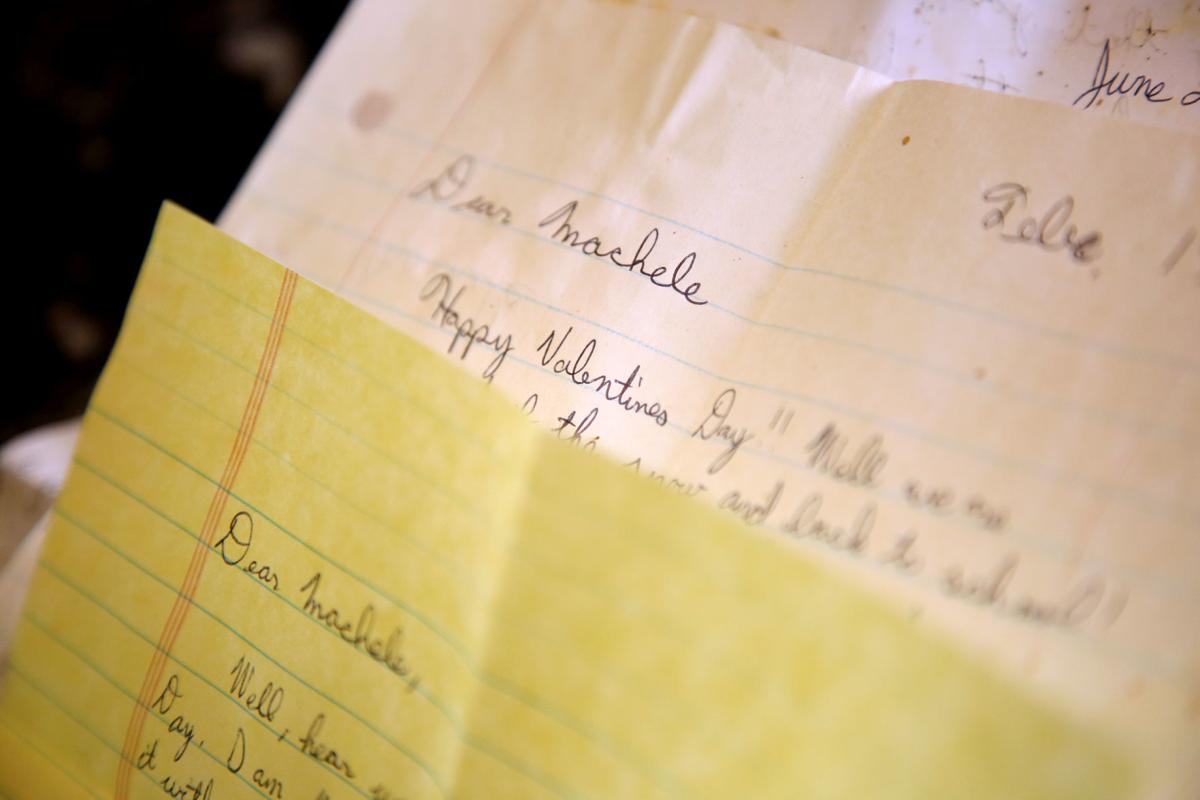 June 2
Febr. 1
Dear Machele
Happy Valentines Day!! Well we are
the snow and back to school!!
Dear Machele,
Well, hear
Day. I am
it with